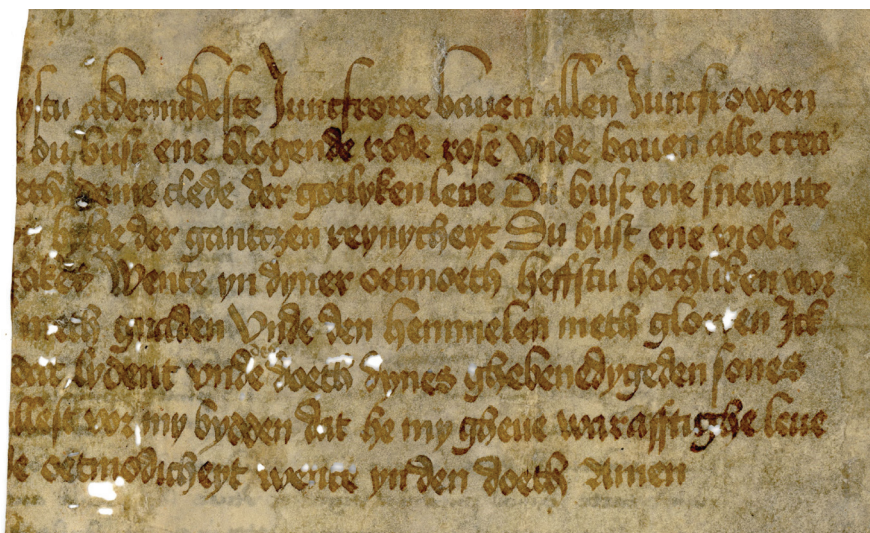 ystu aldermildeste Juncfrowe bauen allen Juncfrowen
du bust ene blogende rode rose vnde bauen alle crea
deme clede der gotlyken leue Du bust ene snewitte
der gantczen reynycheyt Du bust ene viole
Wente yn dyner oetmoeth heffstu hochliken vor
meth gnaden Vnde den hemmelen meth glorien Ick
dat lydent vnde doeth dynes ghebenedygeden sones
vor my bydden dat he my gheue warafftighe leue
oetmodicheyt wente yn den doeth Amen